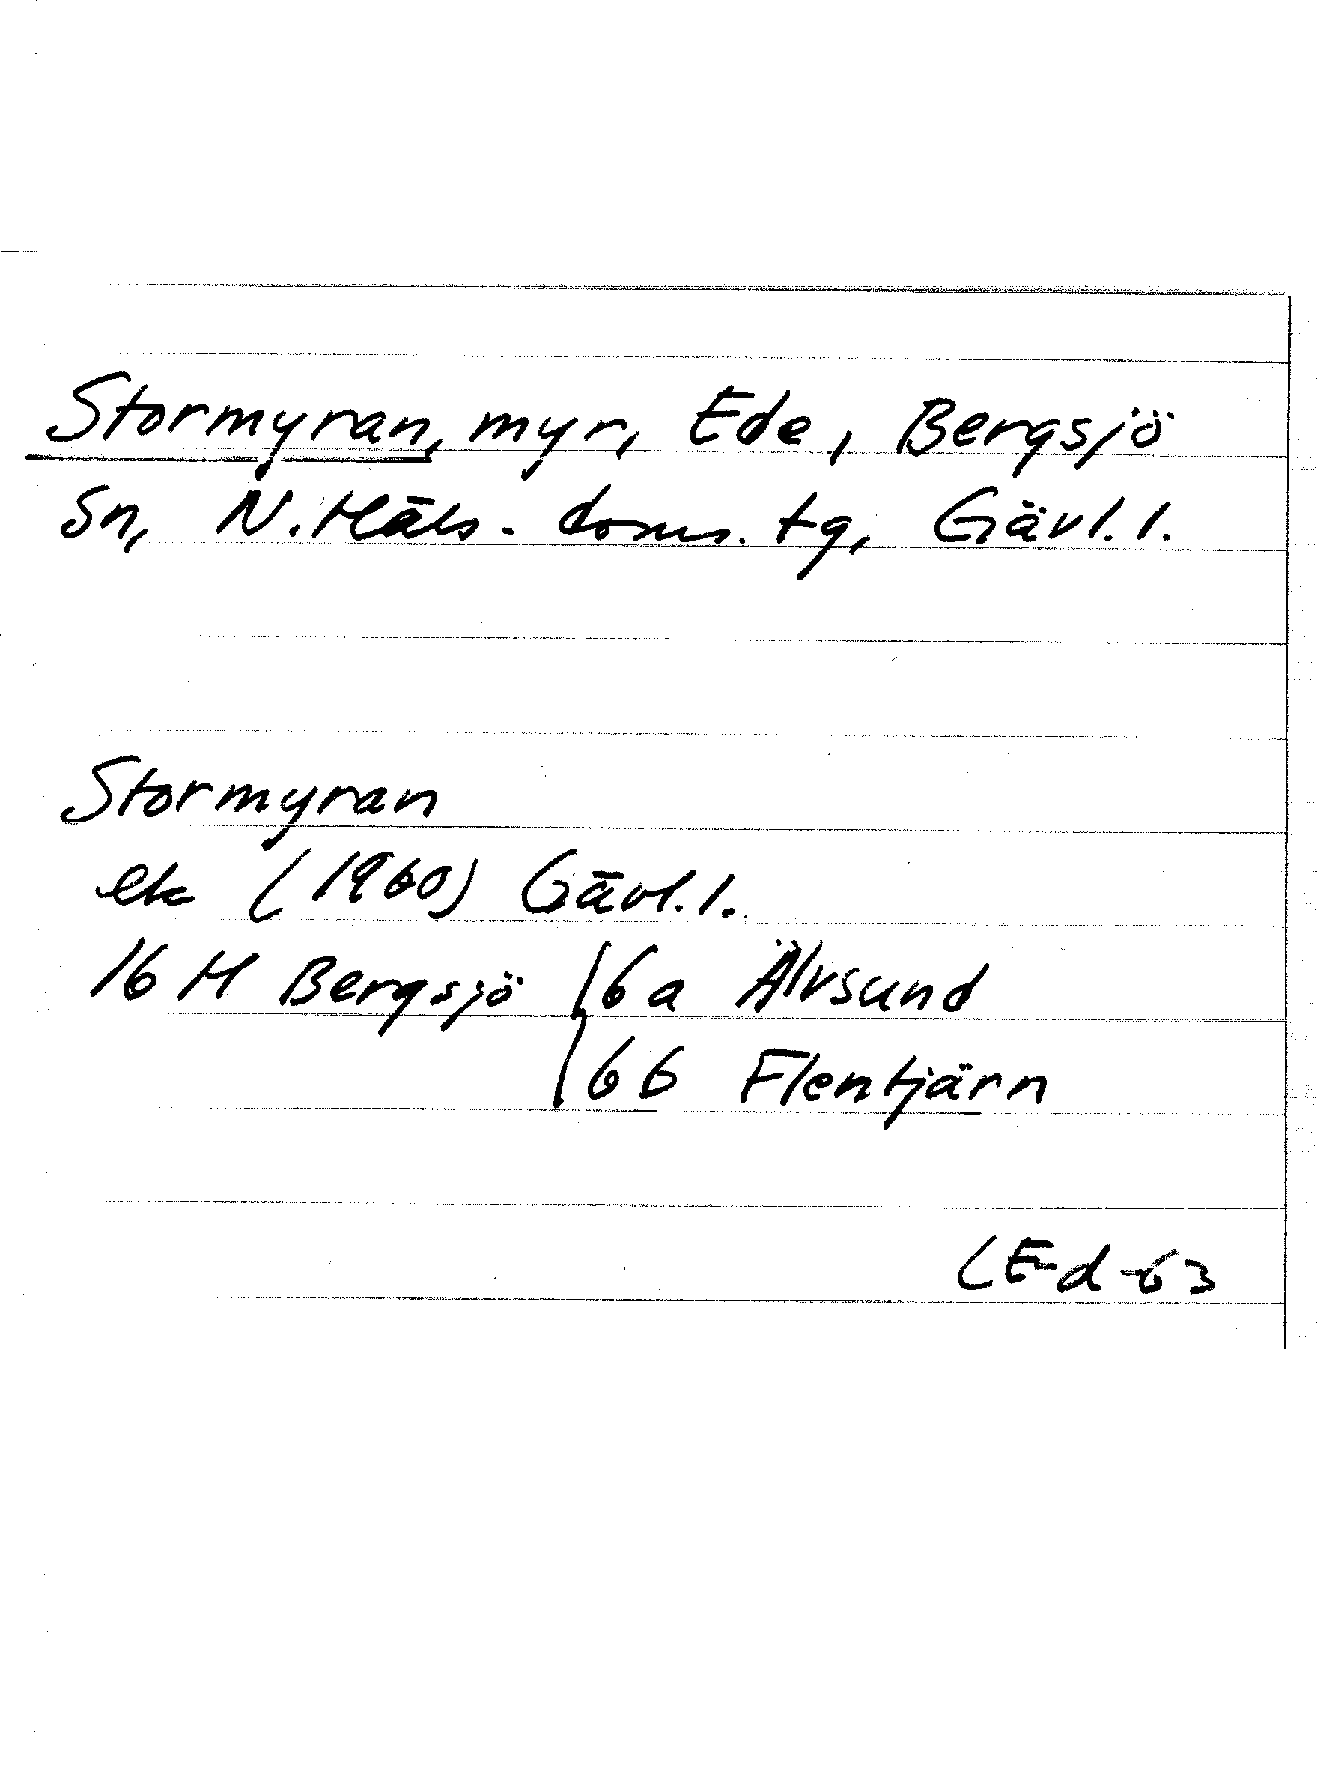 Stormyran, myr, Ede, Bergsjö
Sn, N. Häls. doms. tg, Gävl. l.
Stormyran
ek (1960) Gävl. l.
16 H Bergsjö { 6a Älvsund
6b Flentjärn
LEd-63